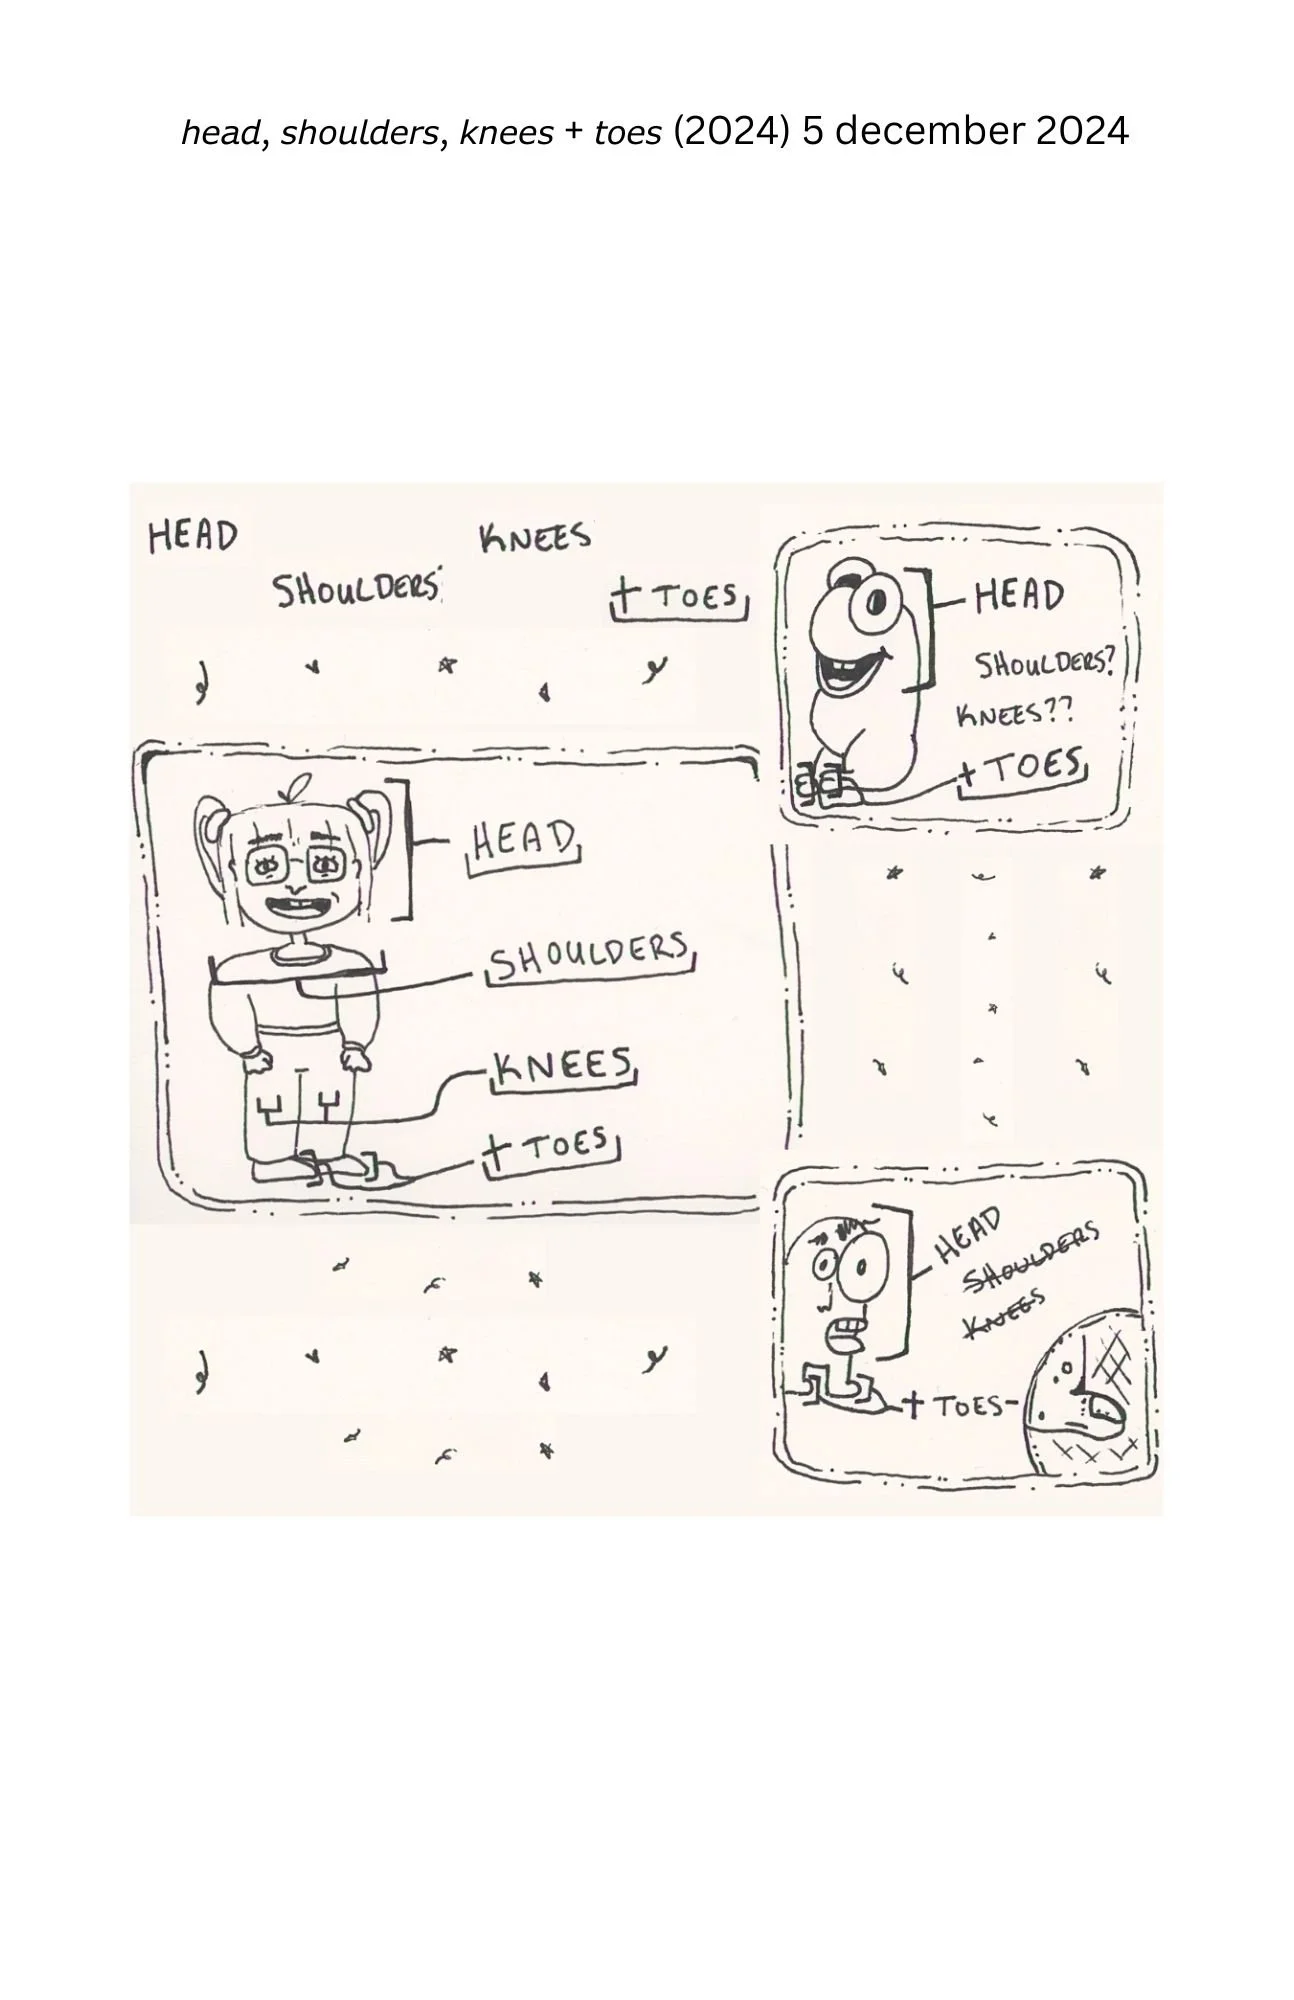 head, shoulders, knees + toes (2024) 5 december 2024
HEAD
KNEES
SHOULDERS
+ TOES
HEAD
SHOULDERS?
KNEES??
+ TOES
HEAD
SHOULDERS
KNEES
+ TOES
HEAD
SHOULDERS
KNEES
+ TOES